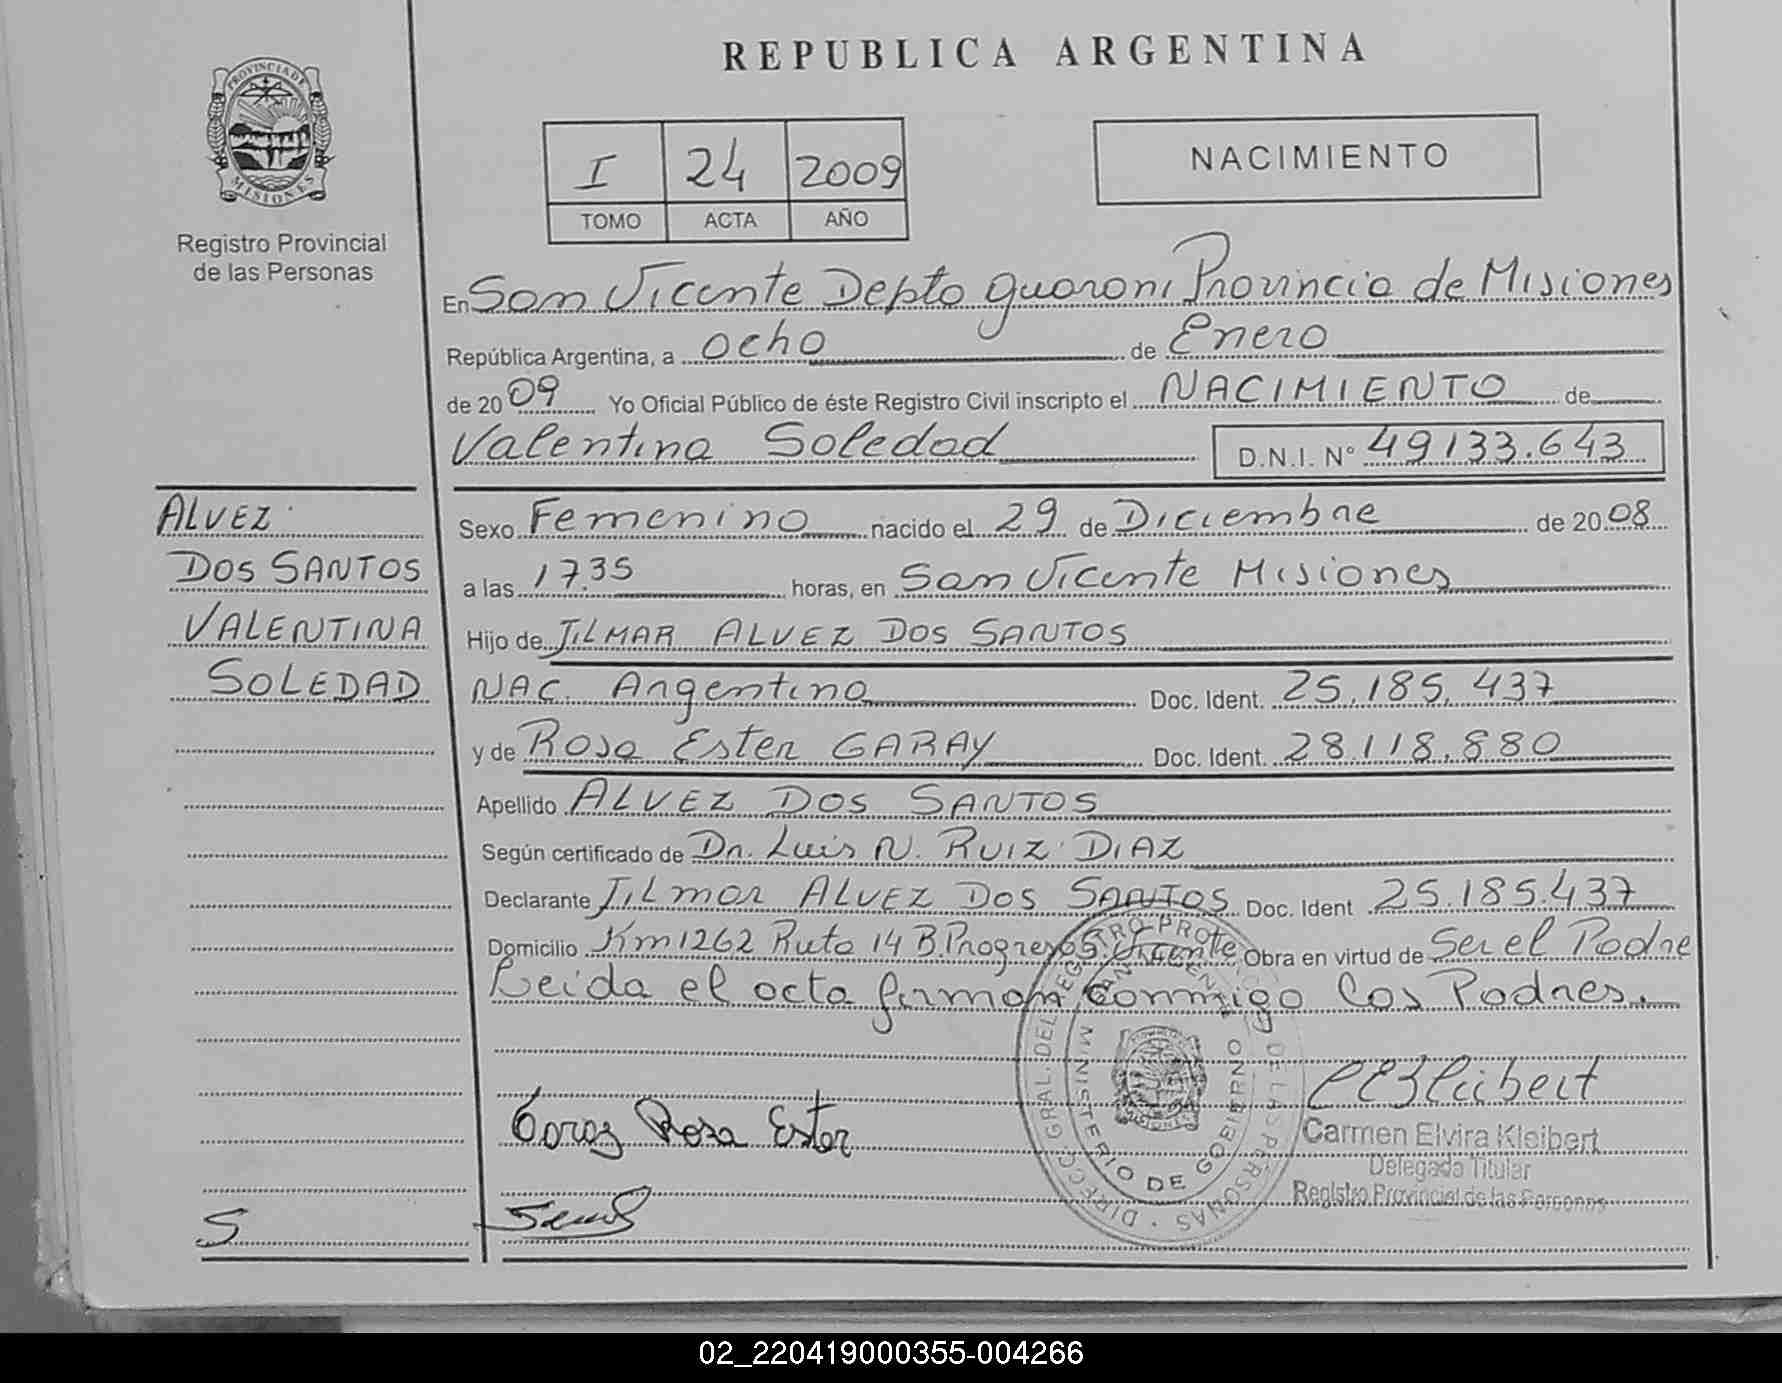 REPUBLICA ARGENTINA
PROVINCIA DE
MISIONES
Registro Provincial
de las Personas
I 24 2009
TOMO ACTA AÑO
NACIMIENTO
En San Vicente Depto guarani Provincia de Misiones
República Argentina, a ocho de Enero
de 2009 Yo Oficial Público de éste Registro Civil inscripto el NACIMIENTO de
Valentina Soledad D.N.I. Nº 49133.643
ALVEZ
DOS SANTOS
VALENTINA
SOLEDAD
Sexo Femenino nacido el 29 de Diciembre de 2008
a las 17.35 horas, en San Vicente Misiones
Hijo de JILMAR ALVEZ DOS SANTOS
NAC. Argentina Doc. Ident. 25.185.437
y de Rosa Ester GARAY Doc. Ident. 28.118.880
Apellido ALVEZ DOS SANTOS
Según certificado de Dr. Luis N. RUIZ DIAZ
Declarante JILmar ALVEZ DOS SANTOS Doc. Ident 25.185.437
Domicilio Km 1262 Ruta 14 B. Progreso S. Vicente Obra en virtud de Ser el Padre
Leida el acta firman conmigo los Padres.
Garay Rosa Ester
Carmen Elvira Kleibert
Delegada Titular
Registro Provincial de las Personas
MINISTERIO DE GOBIERNO
S
02_220419000355-004266